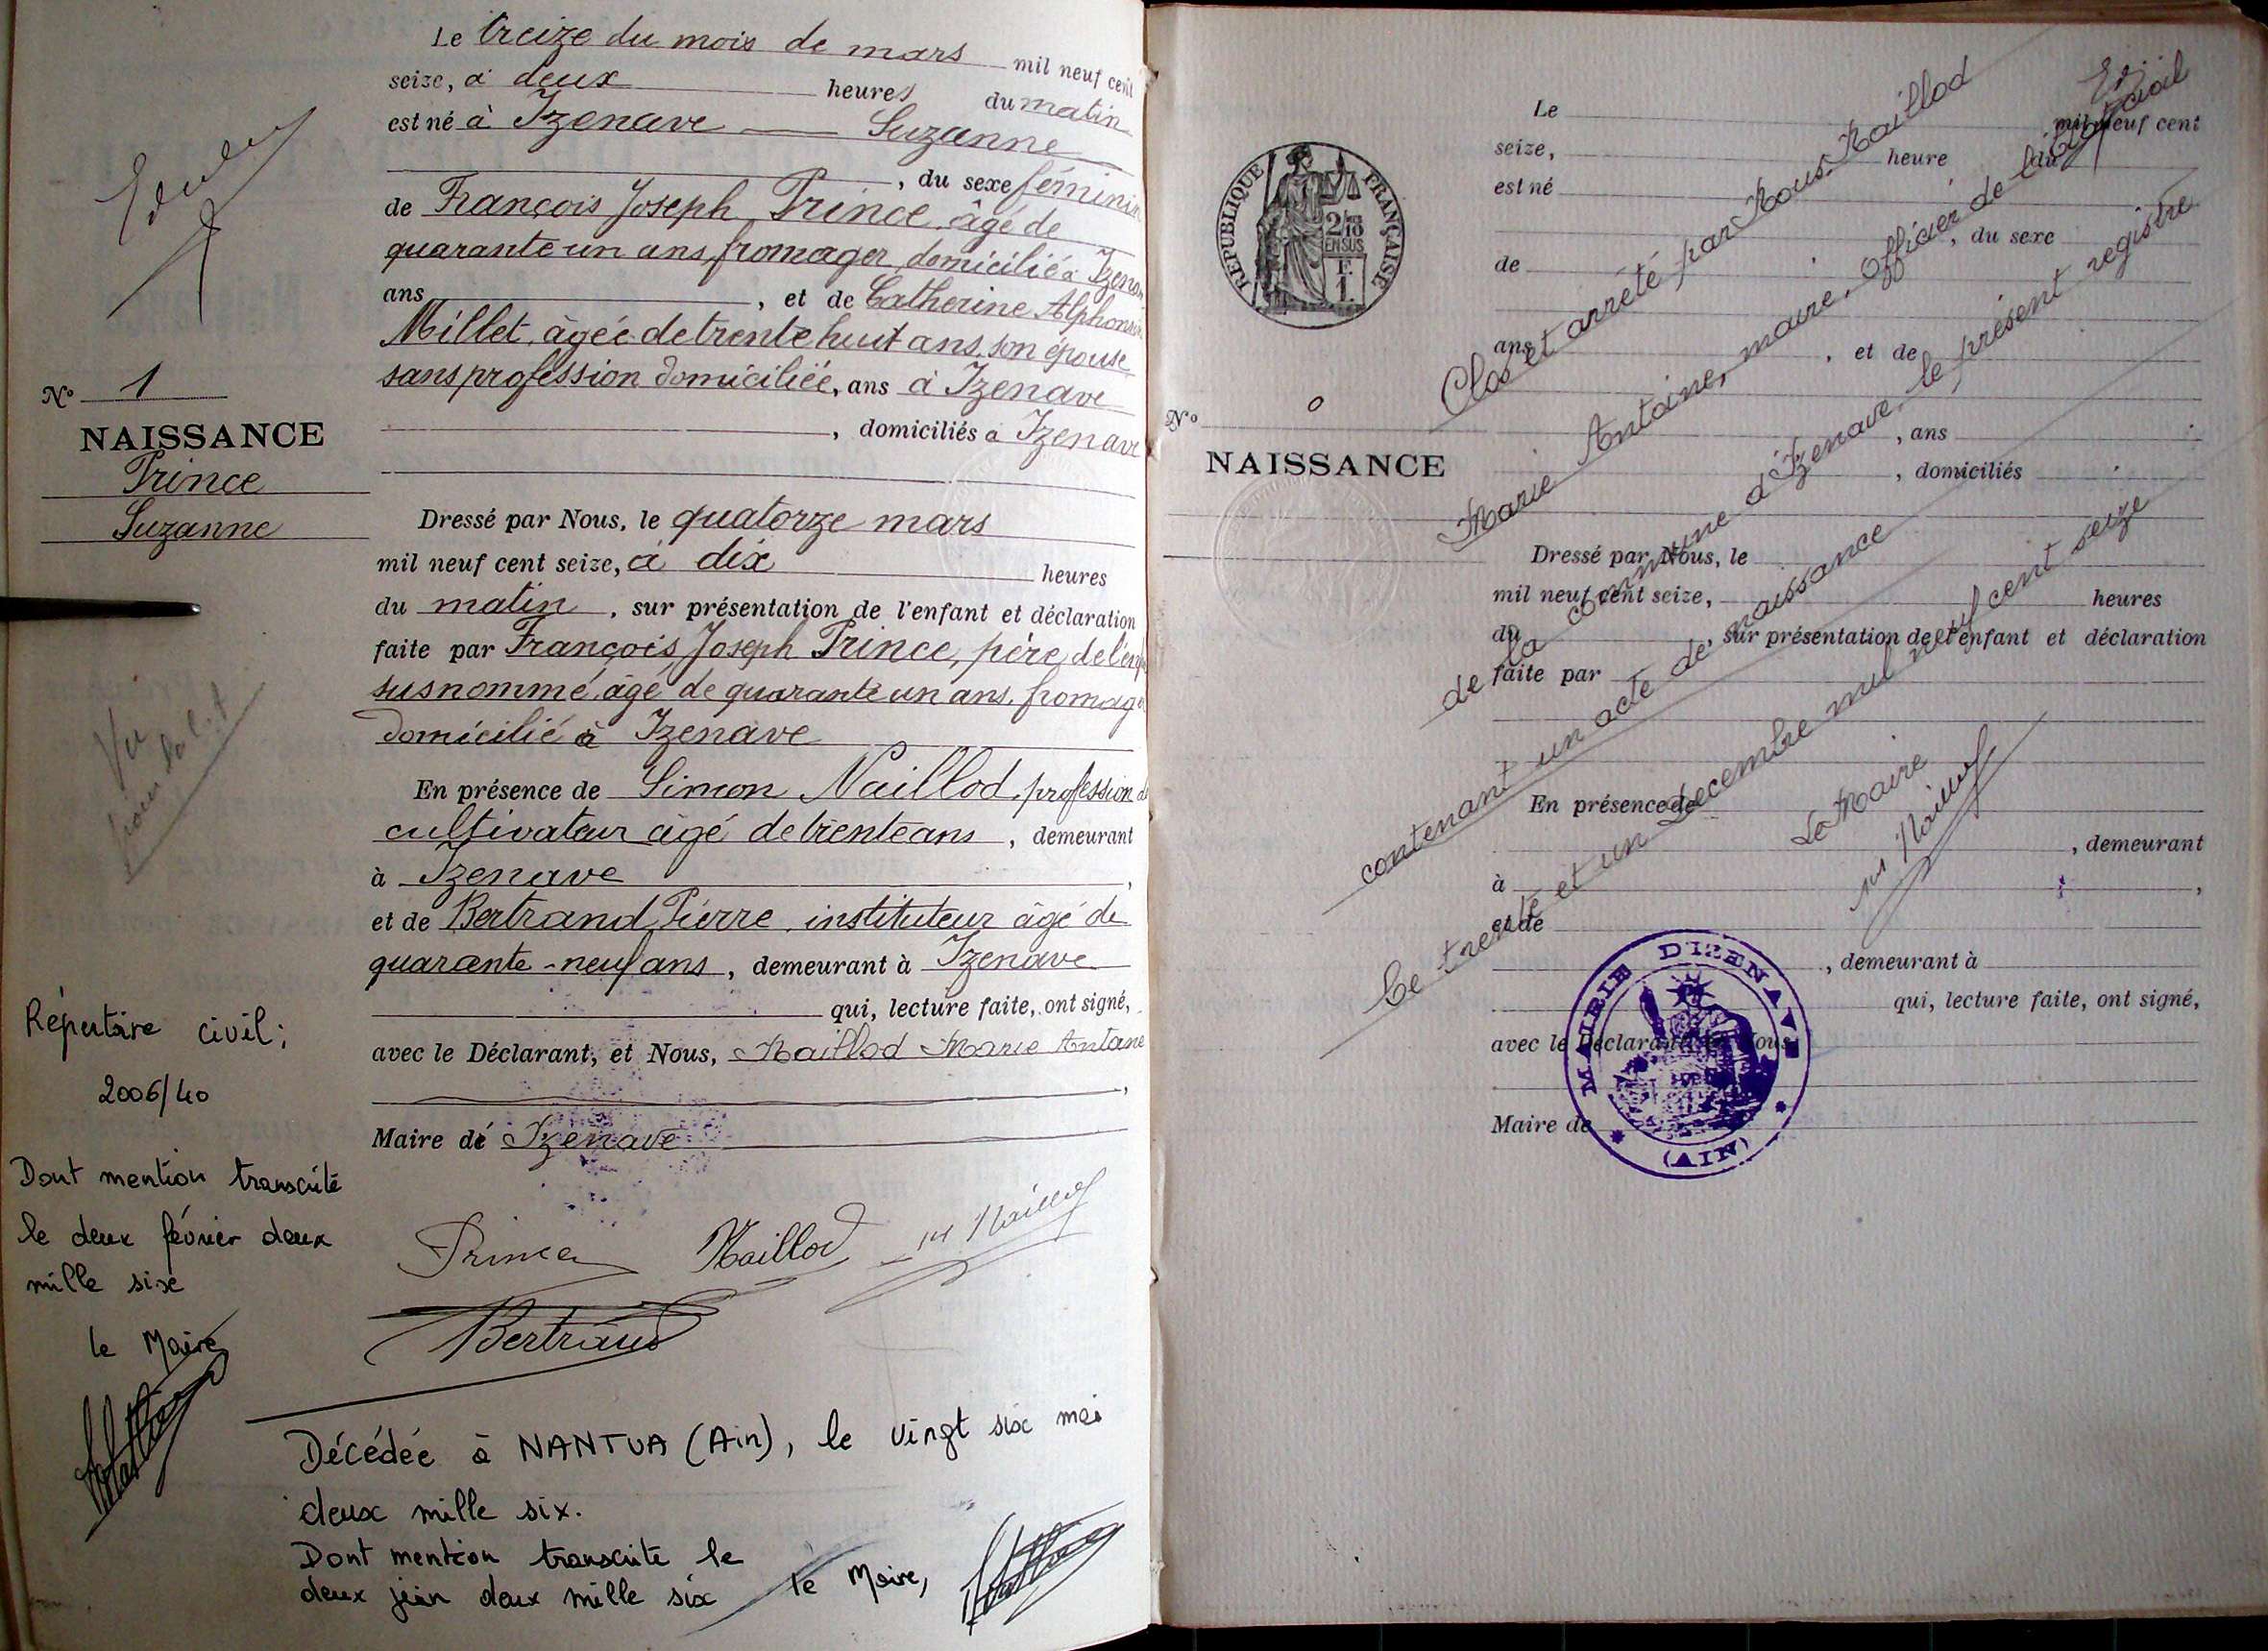 Le treize du mois de mars mil neuf cent
seize, à deux heures du matin
est né à Izenave Suzanne
, du sexe féminin
de François Joseph Prince, âgé de
quarante un ans, fromager, domicilié à Izenave
ans, et de Catherine Alphonsine
Millet, âgée de trente huit ans, son épouse,
sans profession domiciliée, ans à Izenave
, domiciliés à Izenave
No 1
NAISSANCE
Prince
Suzanne
Dressé par Nous, le quatorze mars
mil neuf cent seize, à dix heures
du matin, sur présentation de l'enfant et déclaration
faite par François Joseph Prince, père de l'enfant
susnommé, âgé de quarante un ans, fromager
domicilié à Izenave
Vu
En présence de Simon Naillod, profession de
cultivateur âgé de trente ans, demeurant
à Izenave,
et de Bertrand Pierre, instituteur âgé de
quarante-neuf ans, demeurant à Izenave
qui, lecture faite, ont signé,
avec le Déclarant, et Nous, Naillod Marie Antoine
,
Maire de Izenave
Répertoire civil;
2006/40
Dont mention transcrite
le deux février deux
mille six
le Maire
Prince Naillod Naillod
Bertrand
Décédée à NANTUA (Ain), le vingt six mai
deux mille six.
Dont mention transcrite le
deux juin deux mille six le Maire,
REPUBLIQUE FRANÇAISE
2/10
EN SUS
Le mil neuf cent
seize, heure du
est né
, du sexe
de
ans, et de
, ans
, domiciliés
No 0
NAISSANCE
Dressé par Nous, le
mil neuf cent seize, heures
du, sur présentation de l'enfant et déclaration
faite par
En présence de
, demeurant
à,
et de
, demeurant à
qui, lecture faite, ont signé,
avec le Déclarant, et Nous,
Maire de
Clos et arrêté par Nous, Naillod
Marie Antoine, maire, officier de l'état civil
de la commune d'Izenave, le présent registre
contenant un acte de naissance
Ce trente et un décembre mil neuf cent seize
Le Maire
Naillod
MAIRIE D'IZENAVE
(AIN)